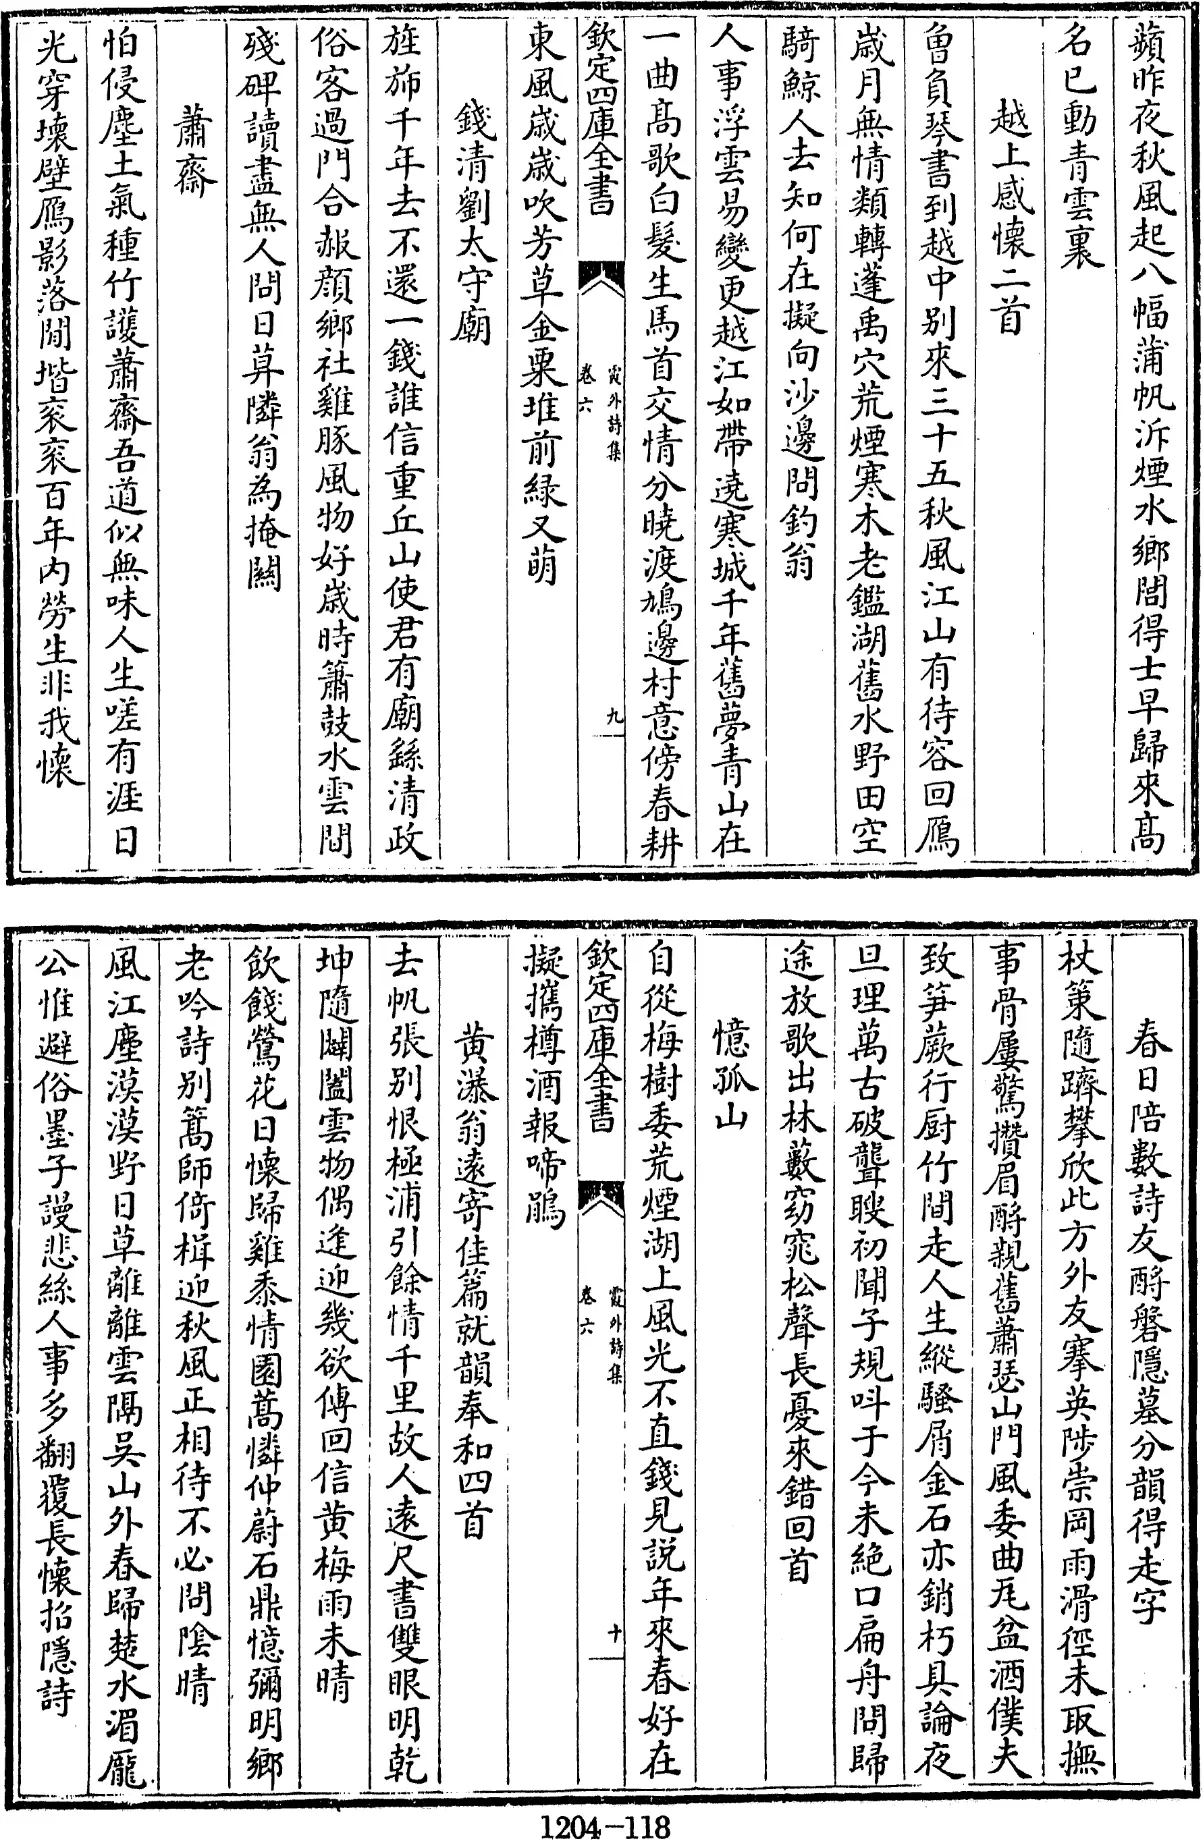 蘋昨夜秋風起八幅蒲帆泝煙水鄉閭得士早歸來髙
名已動青雲裏
越上感懷二首
曾負琴書到越中别來三十五秋風江山有待容回鴈
歲月無情類轉蓬禹穴荒煙寒木老鑑湖舊水野田空
騎鯨人去知何在擬向沙邊問釣翁
人事浮雲易變更越江如帶遶寒城千年舊夢青山在
一曲髙歌白髮生馬首交情分曉渡鳩邊村意傍春耕
欽定四庫全書
霞外詩集
卷六
九
東風歲歲吹芳草金粟堆前緑又萌
錢清劉太守廟
旌斾千年去不還一錢誰信重丘山使君有廟繇清政
俗客過門合赧顔鄉社雞豚風物好歲時簫鼓水雲間
殘碑讀盡無人問日莫隣翁為掩關
蕭齋
怕侵塵土氣種竹護蕭齋吾道似無味人生嗟有涯日
光穿壞壁鴈影落閒堦衮衮百年内勞生非我懷
春日陪數詩友酹磐隱墓分韻得走字
杖䇿隨躋攀欣此方外友搴英陟崇岡雨滑徑未取撫
事骨屢驚攢眉酹親舊蕭瑟山門風委曲瓦盆酒僕夫
致笋蕨行厨竹間走人生縱騷屑金石亦銷朽具論夜
旦理萬古破聾瞍初聞子規呌于今未絶口扁舟問歸
途放歌出林藪窈窕松聲長憂來錯回首
憶孤山
自從梅樹委荒煙湖上風光不直錢見説年來春好在
欽定四庫全書
霞外詩集
卷六
十
擬攜樽酒報啼鵑
黄瀑翁遠寄佳篇就韻奉和四首
去帆張别恨極浦引餘情千里故人遠尺書雙眼明乾
坤隨闢闔雲物偶逢迎幾欲傳回信黄梅雨未晴
飲餞鶯花日懷歸雞黍情園蒿憐仲蔚石鼎憶彌明鄉
老吟詩别篙師倚楫迎秋風正相待不必問陰晴
風江塵漠漠野日草離離雲隔吳山外春歸楚水湄龎
公惟避俗墨子謾悲絲人事多翻覆長懷招隱詩
1204-118